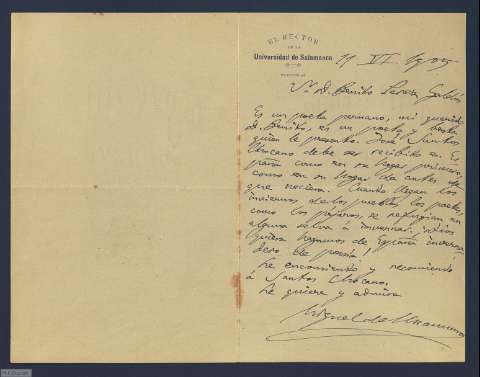 EL RECTOR
DE LA
Universidad de Salamanca
PARTICULAR
11 VI 1905
Sr. D. Benito Pérez Galdós
Es un poeta peruano, mi querido
D. Benito, es un poeta y basta
quien le presento. José Santos
Chocano debe ser recibido en Es
paña como en su hogar primero,
como en su hogar de antes de
que naciera. Cuando llegan los
inviernos de los pueblos los poetas,
como los pájaros, se refugian en
alguna selva á invernar;
quiera hagamos de España inverna
dero de poesía!
Le encomiendo y recomiendo
á Santos Chocano.
Le quiere y admira
Miguel de Unamuno